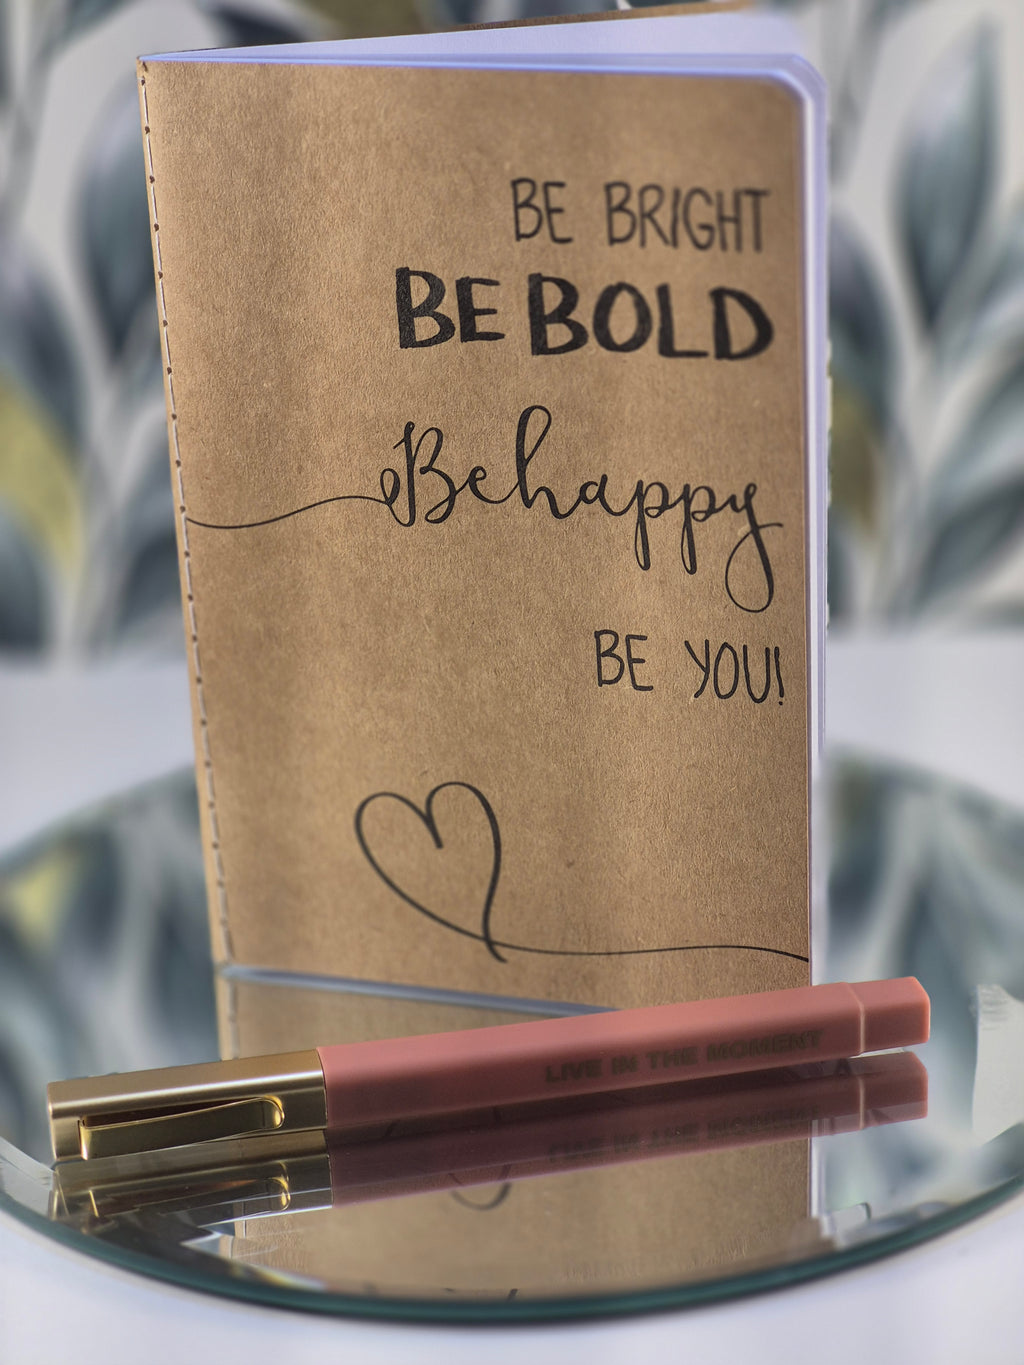 BE BRIGHT
BE BOLD
Be happy
BE YOU!
LIVE IN THE MOMENT